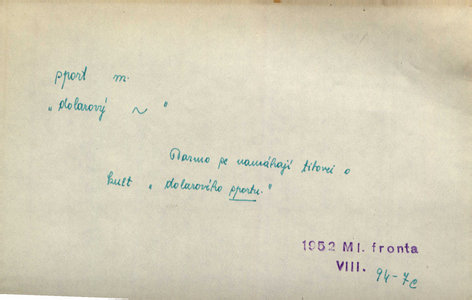 sport m.
„dolarový ~"
Darmo se namáhají titovci o
kult „dolarového sportu."
1952 Ml. fronta
VIII. 94-7c